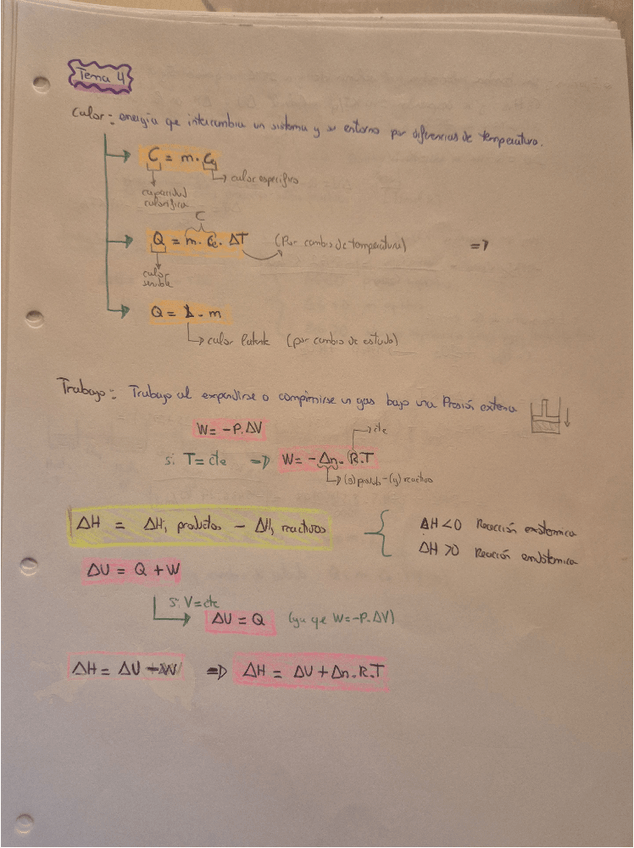 Tema 4
Calor: energía que intercambia un sistema y su entorno por diferencias de temperatura.
C = m · Ce
calor específico
capacidad calorífica
C
Q = m · Ce · ΔT (Por cambio de temperatura) =>
calor sensible
Q = L · m
calor latente (por cambio de estado)
Trabajo: Trabajo al expandirse o comprimirse un gas bajo una Presión externa
W = -P.ΔV
cte
si T = cte => W = -Δn. R.T
(g) produto - (g) reactivo
ΔH = ΔHf productos - ΔHf reactivos
ΔH < 0 Reacción exotérmica
ΔH > 0 Reacción endotérmica
ΔU = Q + W
si V = cte
ΔU = Q (ya qe W = -P.ΔV)
ΔH = ΔU - W => ΔH = ΔU + Δn.R.T